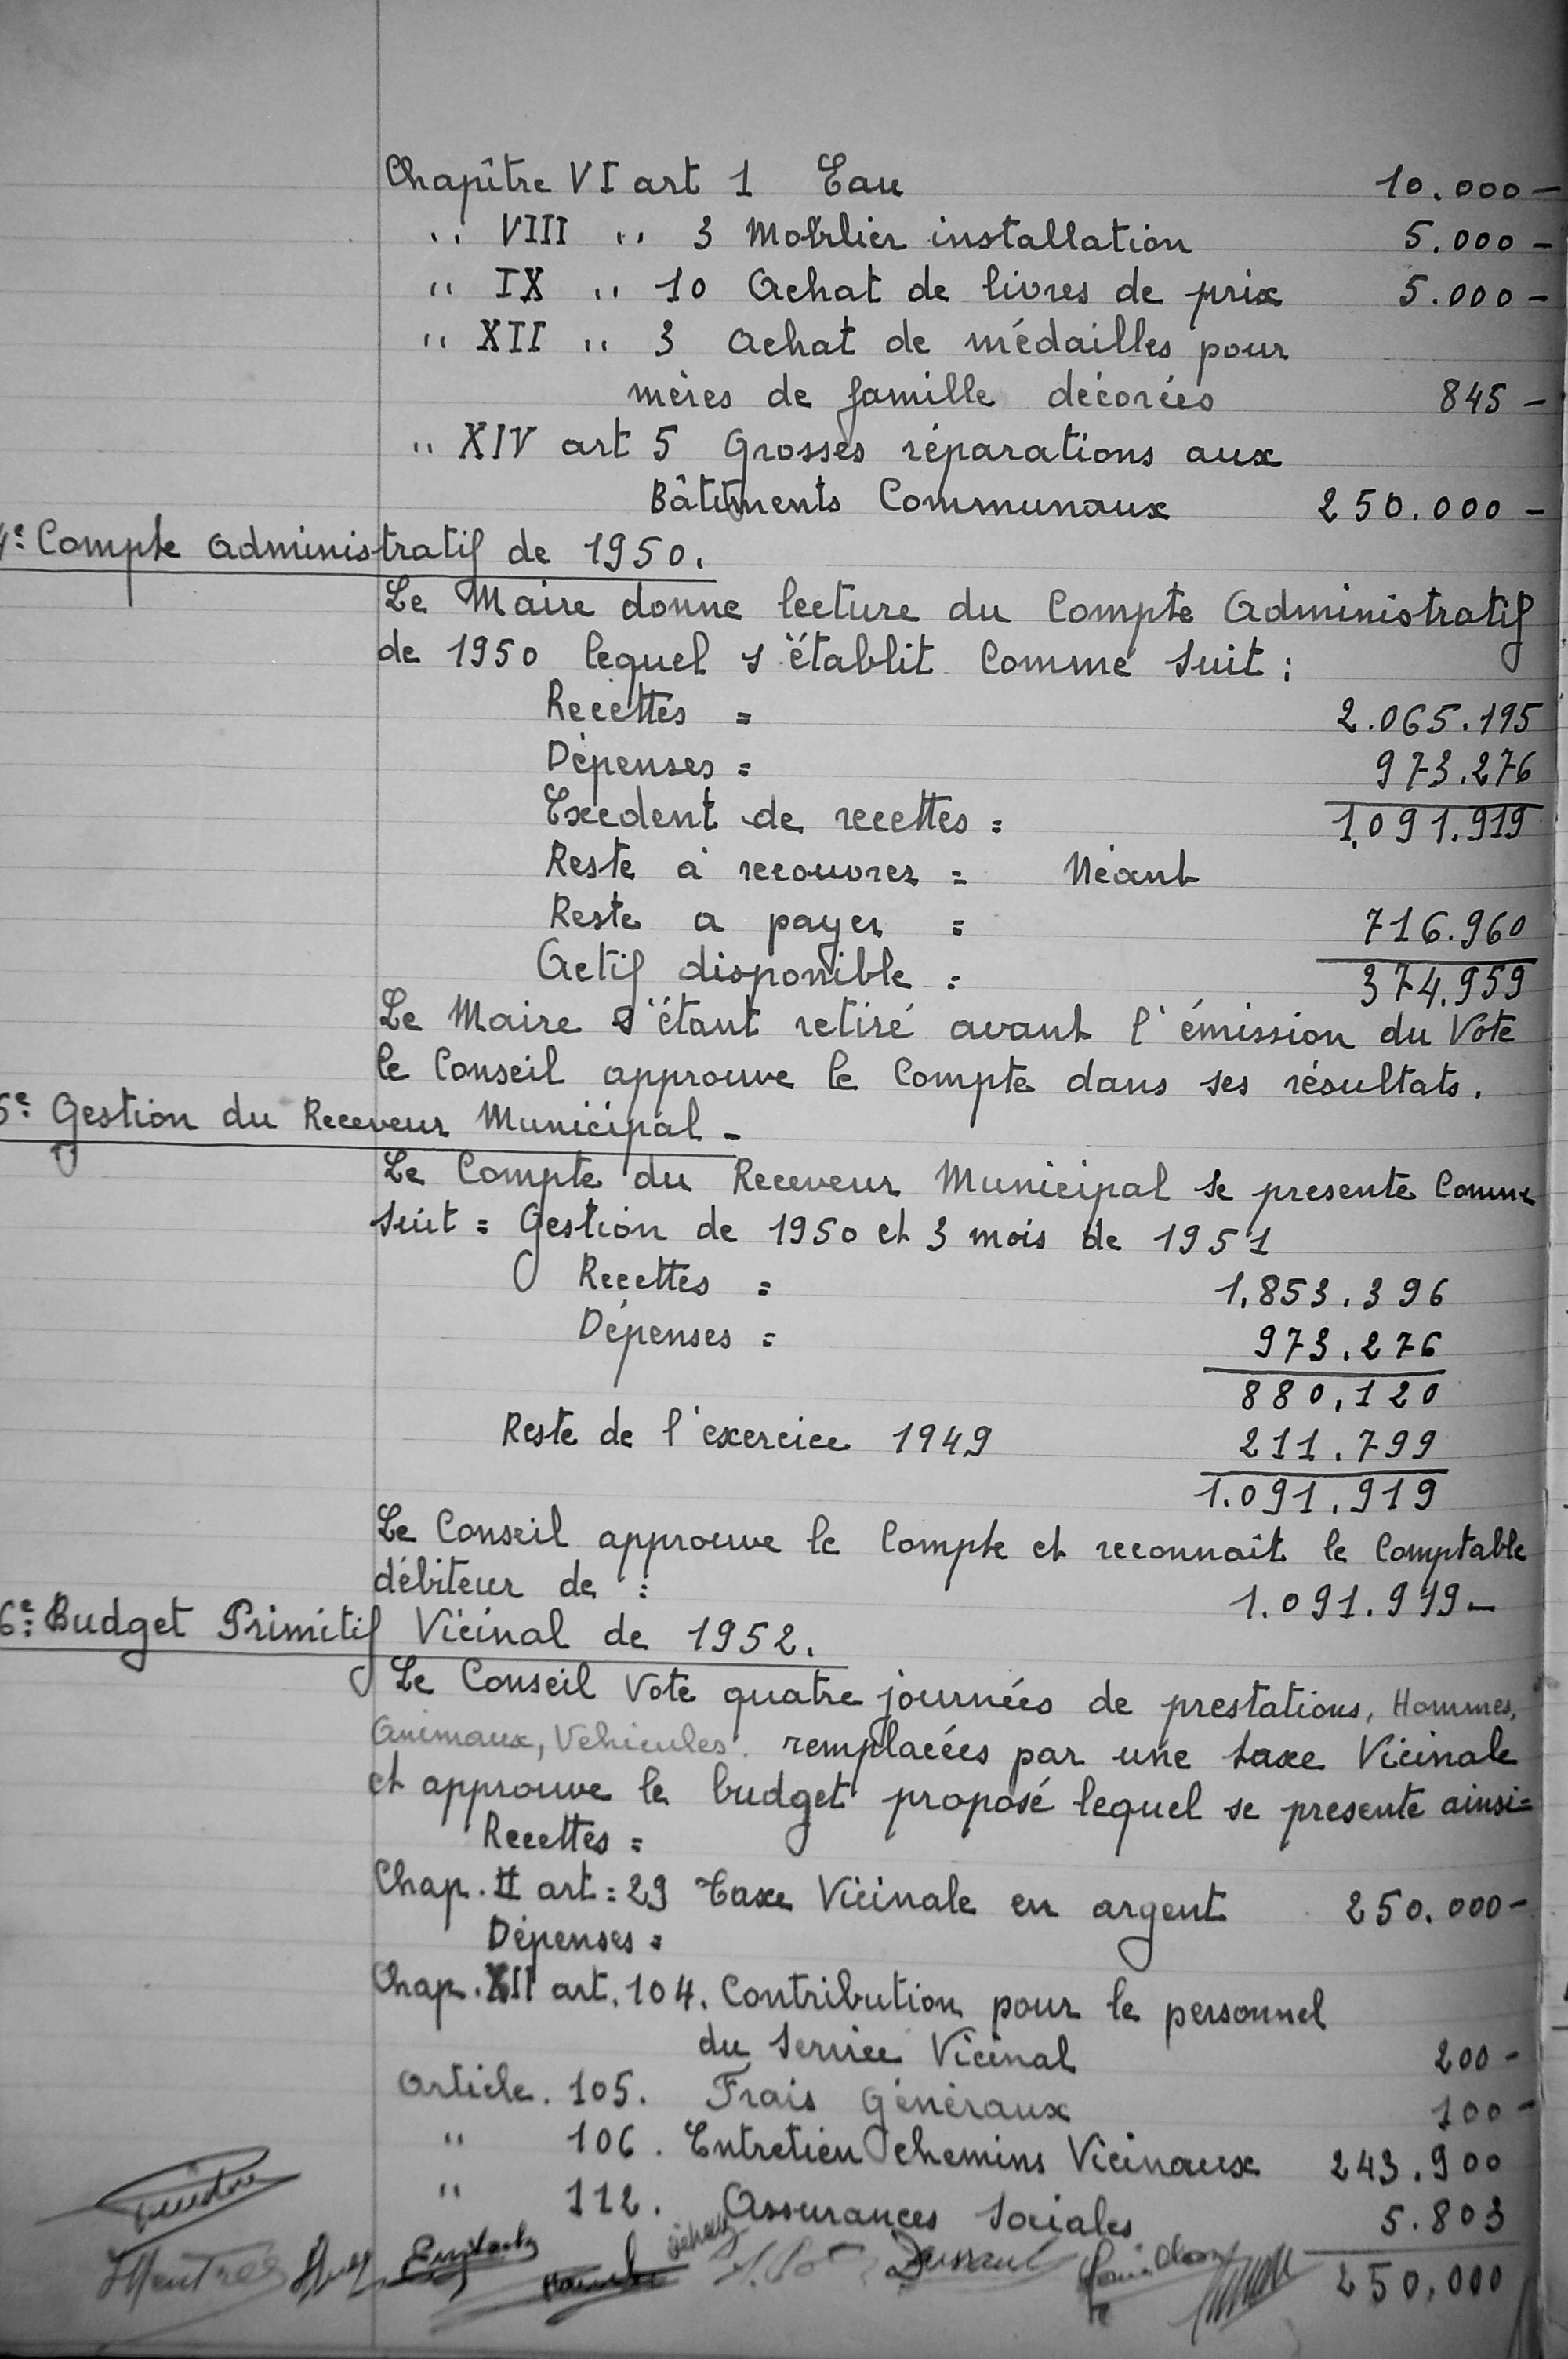 Chapître VI art 1 Eau 10.000 –
" VIII " 3 Mobilier installation 5.000 –
" IX " 10 Achat de livres de prix 5.000 –
" XII " 3 Achat de médailles pour
mères de famille décorées 845 –
" XIV art 5 Grosses réparations aux
Bâtiments Communaux 250.000 –
4e: Compte Administratif de 1950.
Le Maire donne lecture du Compte Administratif
de 1950 lequel s'établit Comme suit :
Recettes = 2.065.195
Dépenses = 973.276
Exedent de recettes = 1.091.919
Reste à recouvrer = Néant
Reste a payer = 716.960
Actif disponible = 374.959
Le Maire s'étant retiré avant l'émission du Vote
le Conseil approuve le Compte dans ses résultats.
5e: Gestion du Receveur Municipal –
Le Compte du Receveur Municipal se presente Comme
suit = Gestion de 1950 et 3 mois de 1951
Recettes = 1.853.396
Dépenses = 973.276
880.120
Reste de l'exercice 1949 211.799
1.091.919
Le Conseil approuve le Compte et reconnaît le Comptable
débiteur de : 1.091.919 –
6e: Budget Primitif Vicinal de 1952.
Le Conseil Vote quatre journées de prestations, Hommes,
Animaux, Vehicules. remplacées par une taxe Vicinale
et approuve le budget proposé lequel se presente ainsi =
Recettes =
Chap. II art = 29 Taxe Vicinale en argent 250.000 –
Dépenses =
Chap. XII art. 104. Contribution pour le personnel
du Service Vicinal 200 –
Article. 105. Frais Généraux 100 –
" 106. Entretien Chemins Vicinaux 243.900
" 112. Assurances Sociales 5.803
250.000